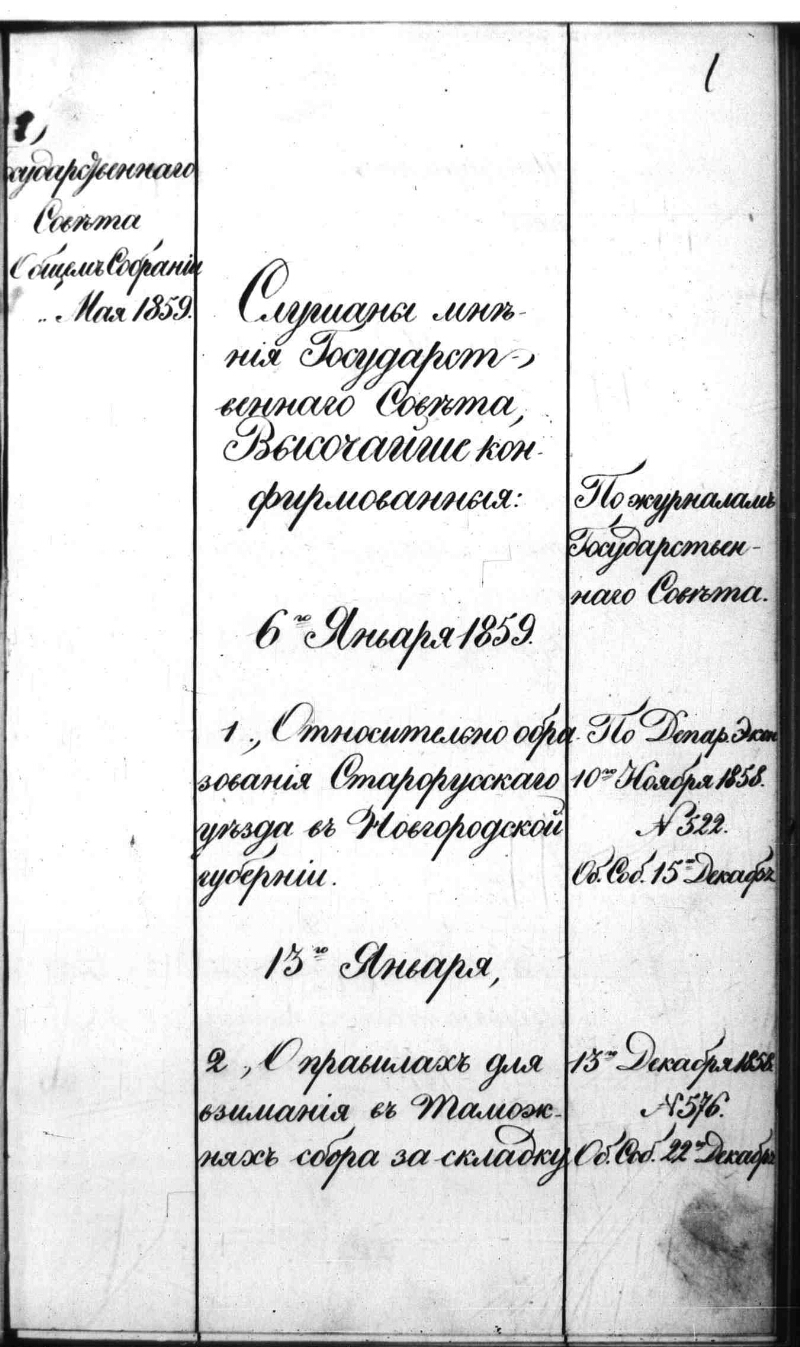 1
1,
осударственнаго
Совѣта
Общемъ Собраніи
„ Мая 1859.
Слушаны мнѣ-
нія Государст-
веннаго Совѣта,
Высочайше кон-
фирмованныя:
По журналамъ
Государствен-
наго Совѣта.
6го Января 1859.
1., Относительно обра
зованія Старорусскаго
уѣзда въ Новгородской
губерніи.
По Депар. Экон
10го Ноября 1858.
№ 522.
Об. Соб. 15го Декабр.
13го Января,
2, О правилахъ для
взиманія въ Тамож-
няхъ сбора за складку
13го Декабря 1858.
№ 576.
Об. Соб. 22го Декабр.